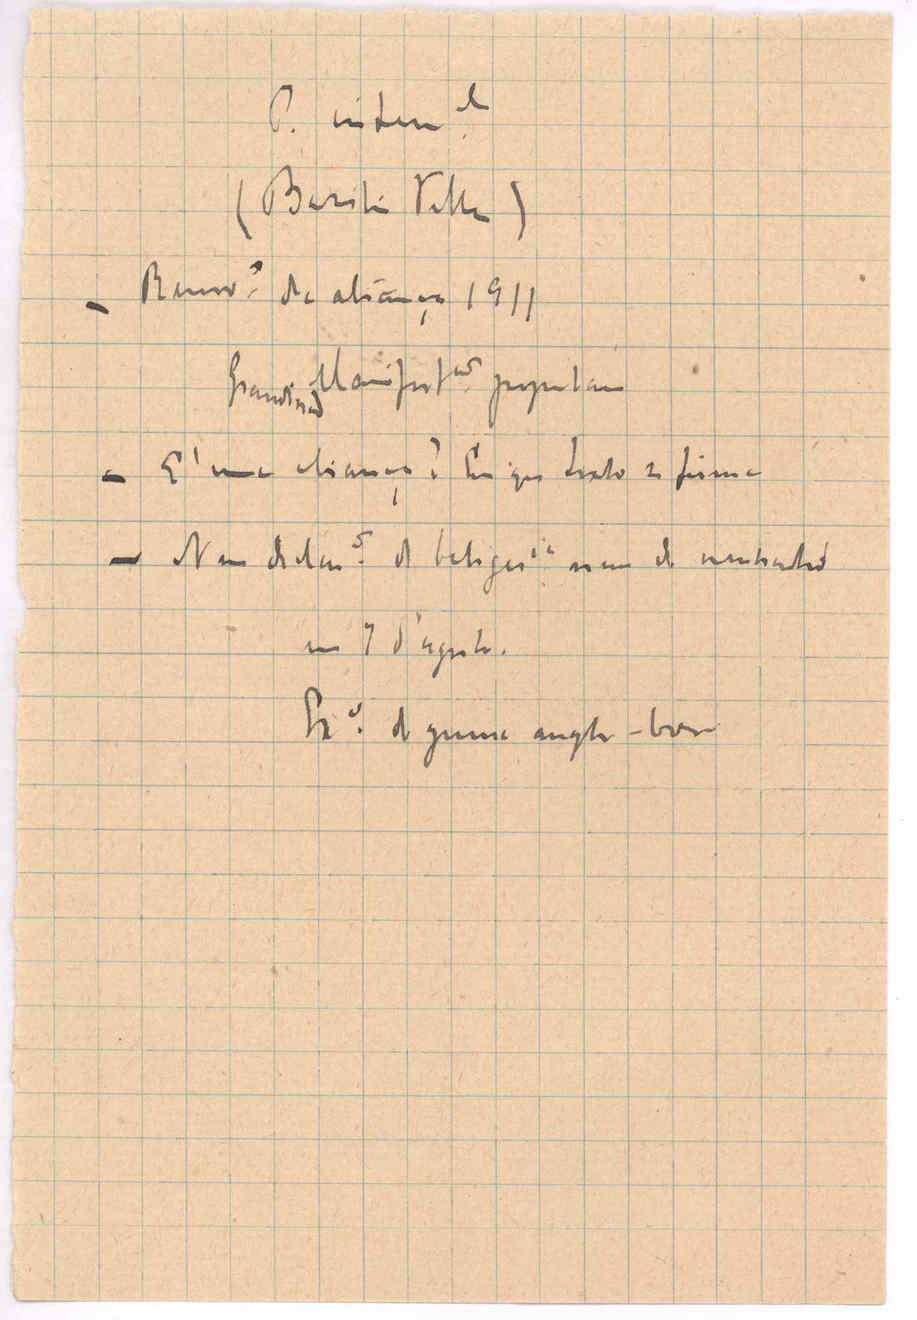 P. intern.al
(Barsti Vella)
- Renov.º da aliança 1911
Grandiosas Manifest.ões populares
- E' uma aliança? Em que texto se firma
- Nem declar.ão de beliger.cia nem de neutralid.
em 7 d'agosto.
Ex.º da guerra anglo-boer